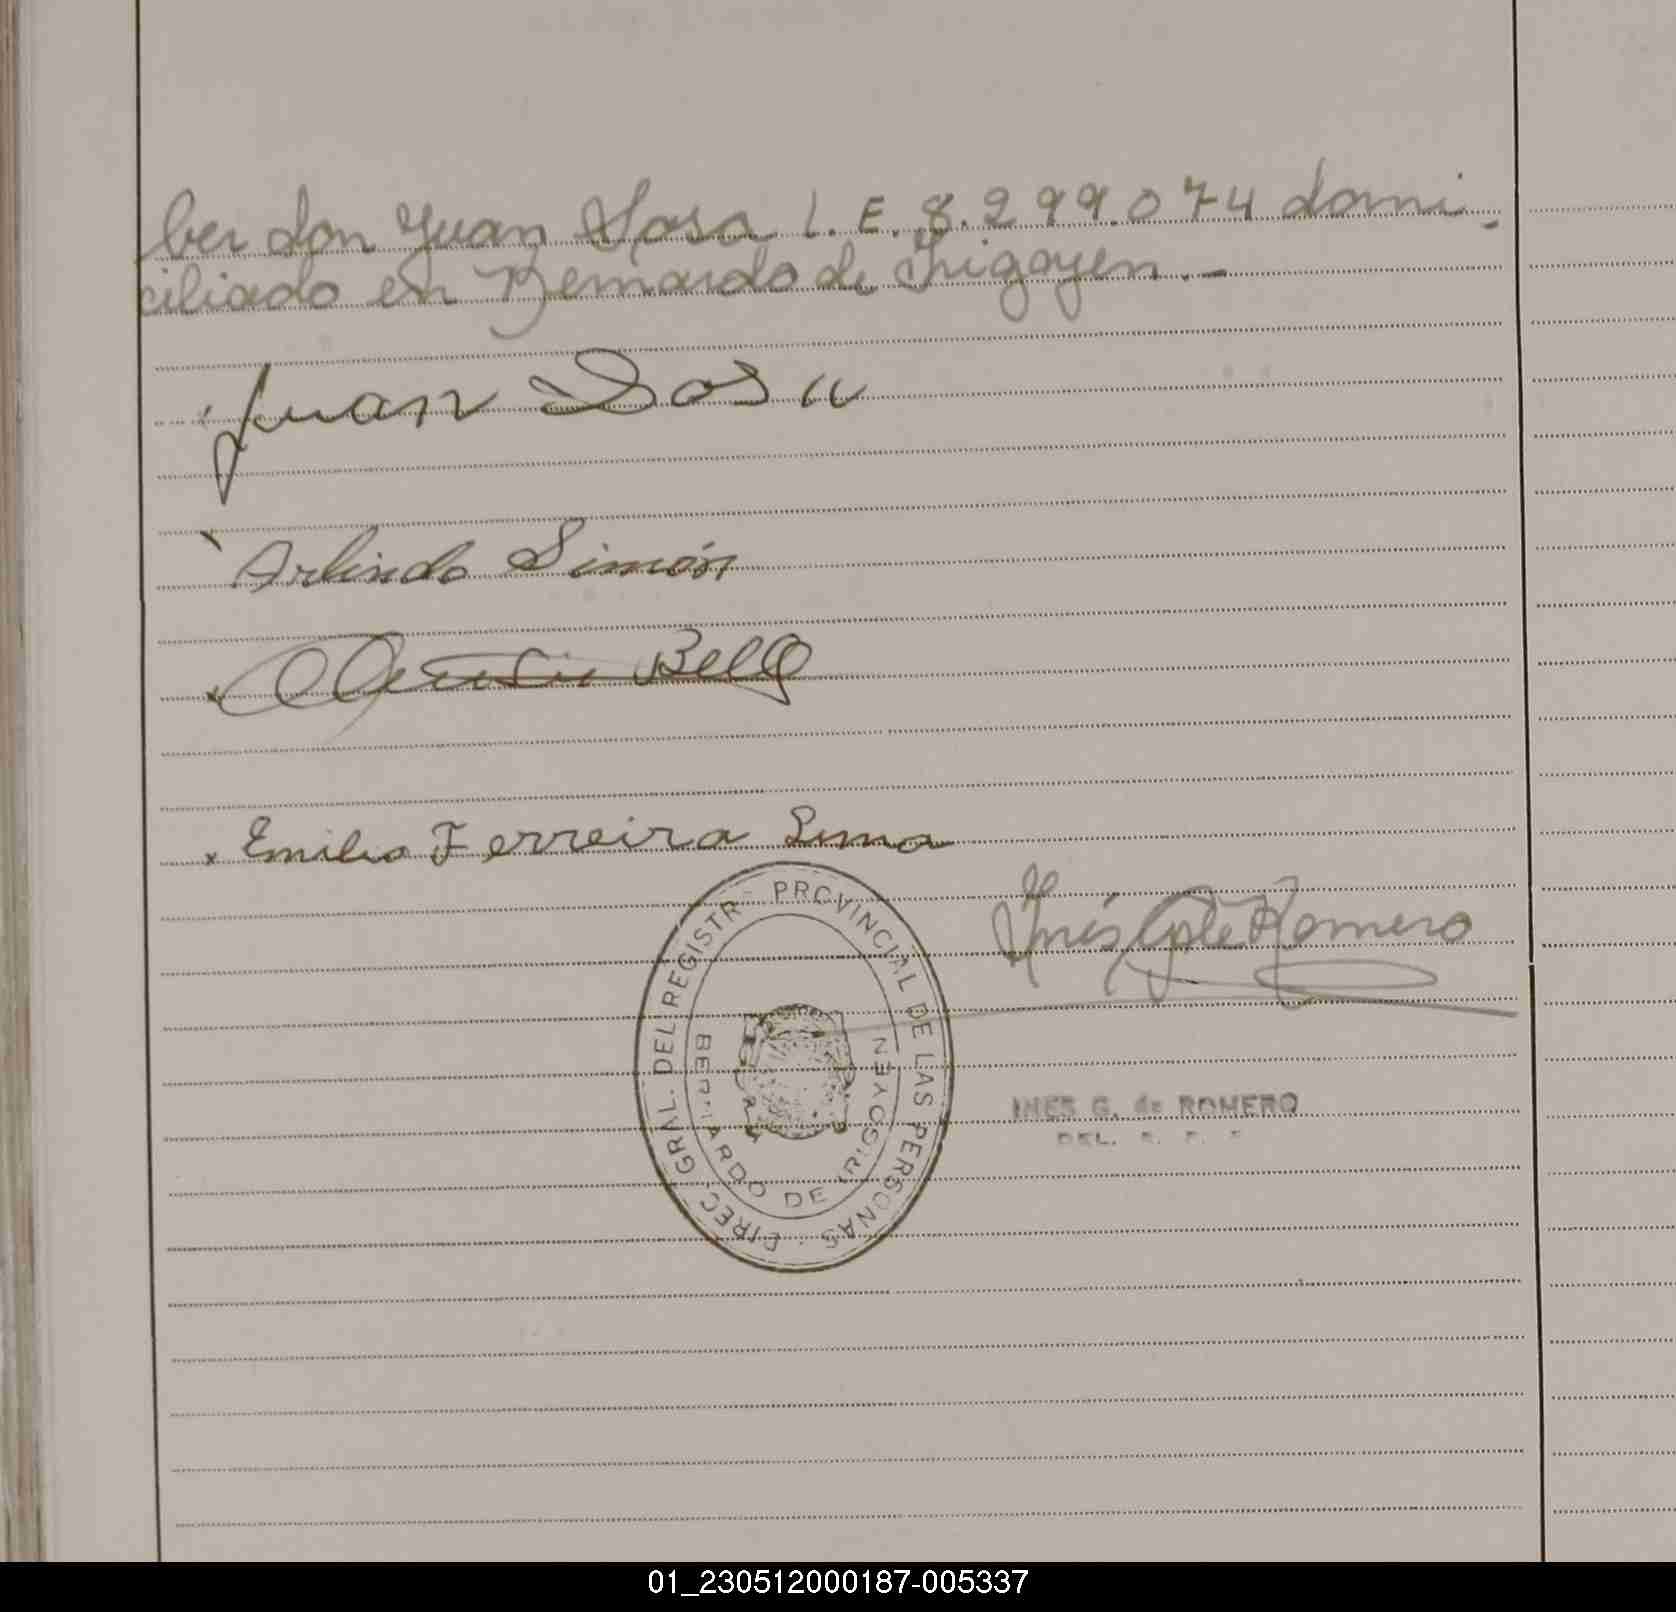 ber don Juan Sosa L.E. 8.299.074 domi-
ciliado en Bernardo de Irigoyen.-
Juan Sosa
Arlindo Simón
Bello
x Emilio Ferreira Lima
Inés G de Romero
DIREC. GRAL. DEL REGISTR PROVINCIAL DE LAS PERSONAS
BERNARDO DE IRIGOYEN
INES G. de ROMERO
DEL.
01_230512000187-005337